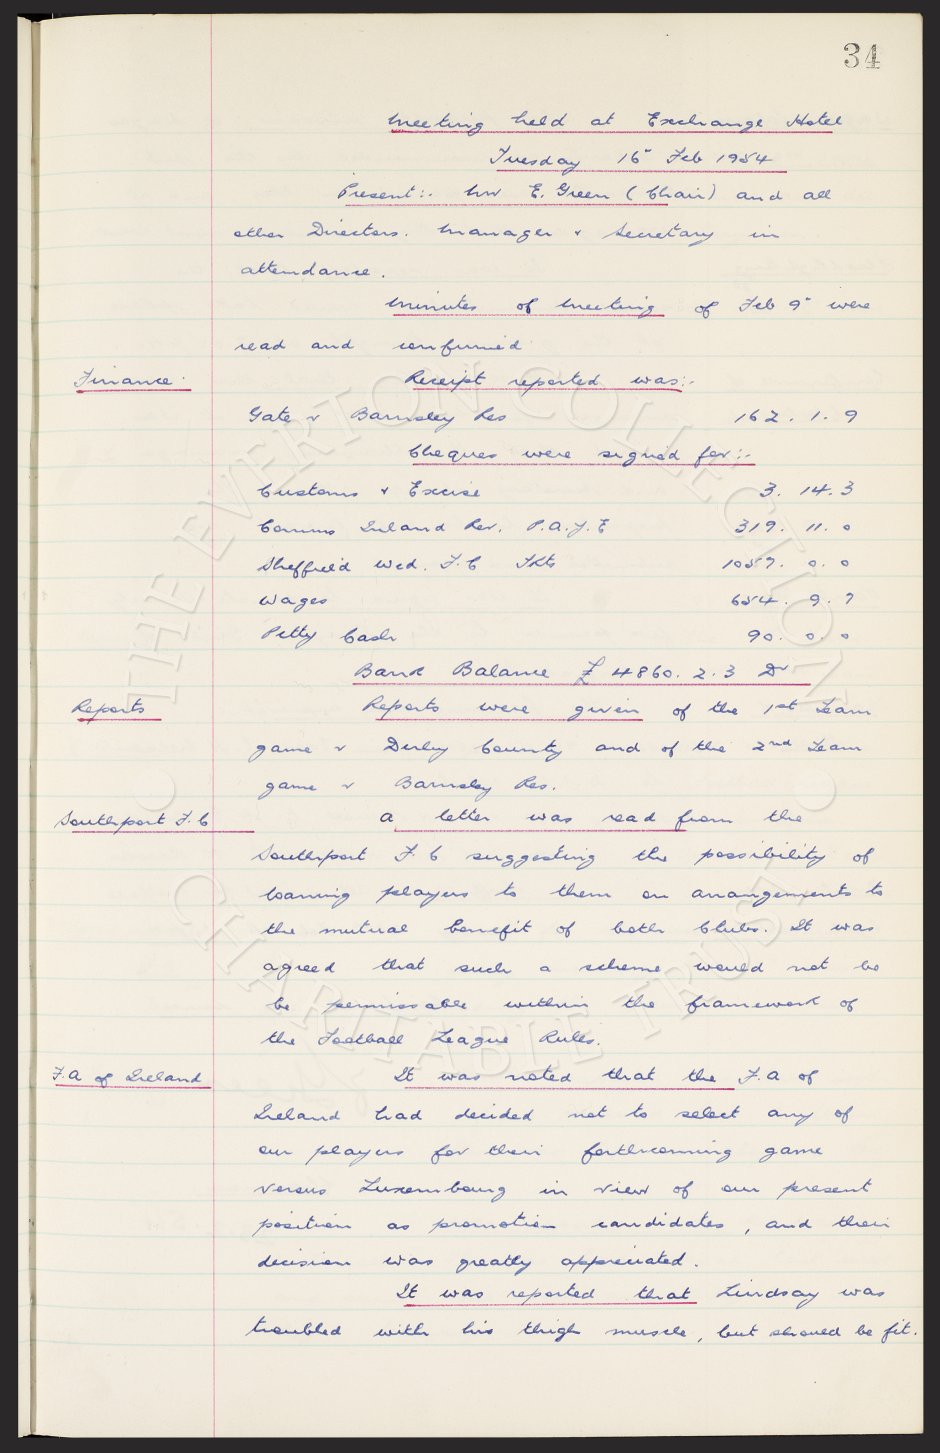 34
Meeting held at Exchange Hotel
Tuesday 16" Feb 1954
Present:- Mr E. Green (Chair) and all
other Directors. Manager & Secretary in
attendance.
Minutes of Meeting of Feb 9" were
read and confirmed
Finance. Receipt reported was:-
Gate v Barnsley Res 162. 1. 9
Cheques were signed for:-
Customs & Excise 3. 14. 3
Comms Inland Rev. P.A.Y.E 319. 11. 0
Sheffield Wed. F.C Tkts 1057. 0. 0
Wages 654. 9. 7
Petty Cash 90. 0. 0
Bank Balance £4860. 2. 3 Dr
Reports Reports were given of the 1st Team
game v Derby County and of the 2nd Team
game v Barnsley Res.
Southport F.C A letter was read from the
Southport F.C suggesting the possibility of
loaning players to them on arrangements to
the mutual benefit of both Clubs. It was
agreed that such a scheme would not be
be permissable within the framework of
the Football League Rules.
F.A of Ireland It was noted that the F.A of
Ireland had decided not to select any of
our players for their forthcoming game
versus Luxembourg in view of our present
position as promotion candidates, and their
decision was greatly appreciated.
It was reported that Lindsay was
troubled with his thigh muscle, but should be fit.
THE EVERTON COLLECTION
CHARITABLE TRUST